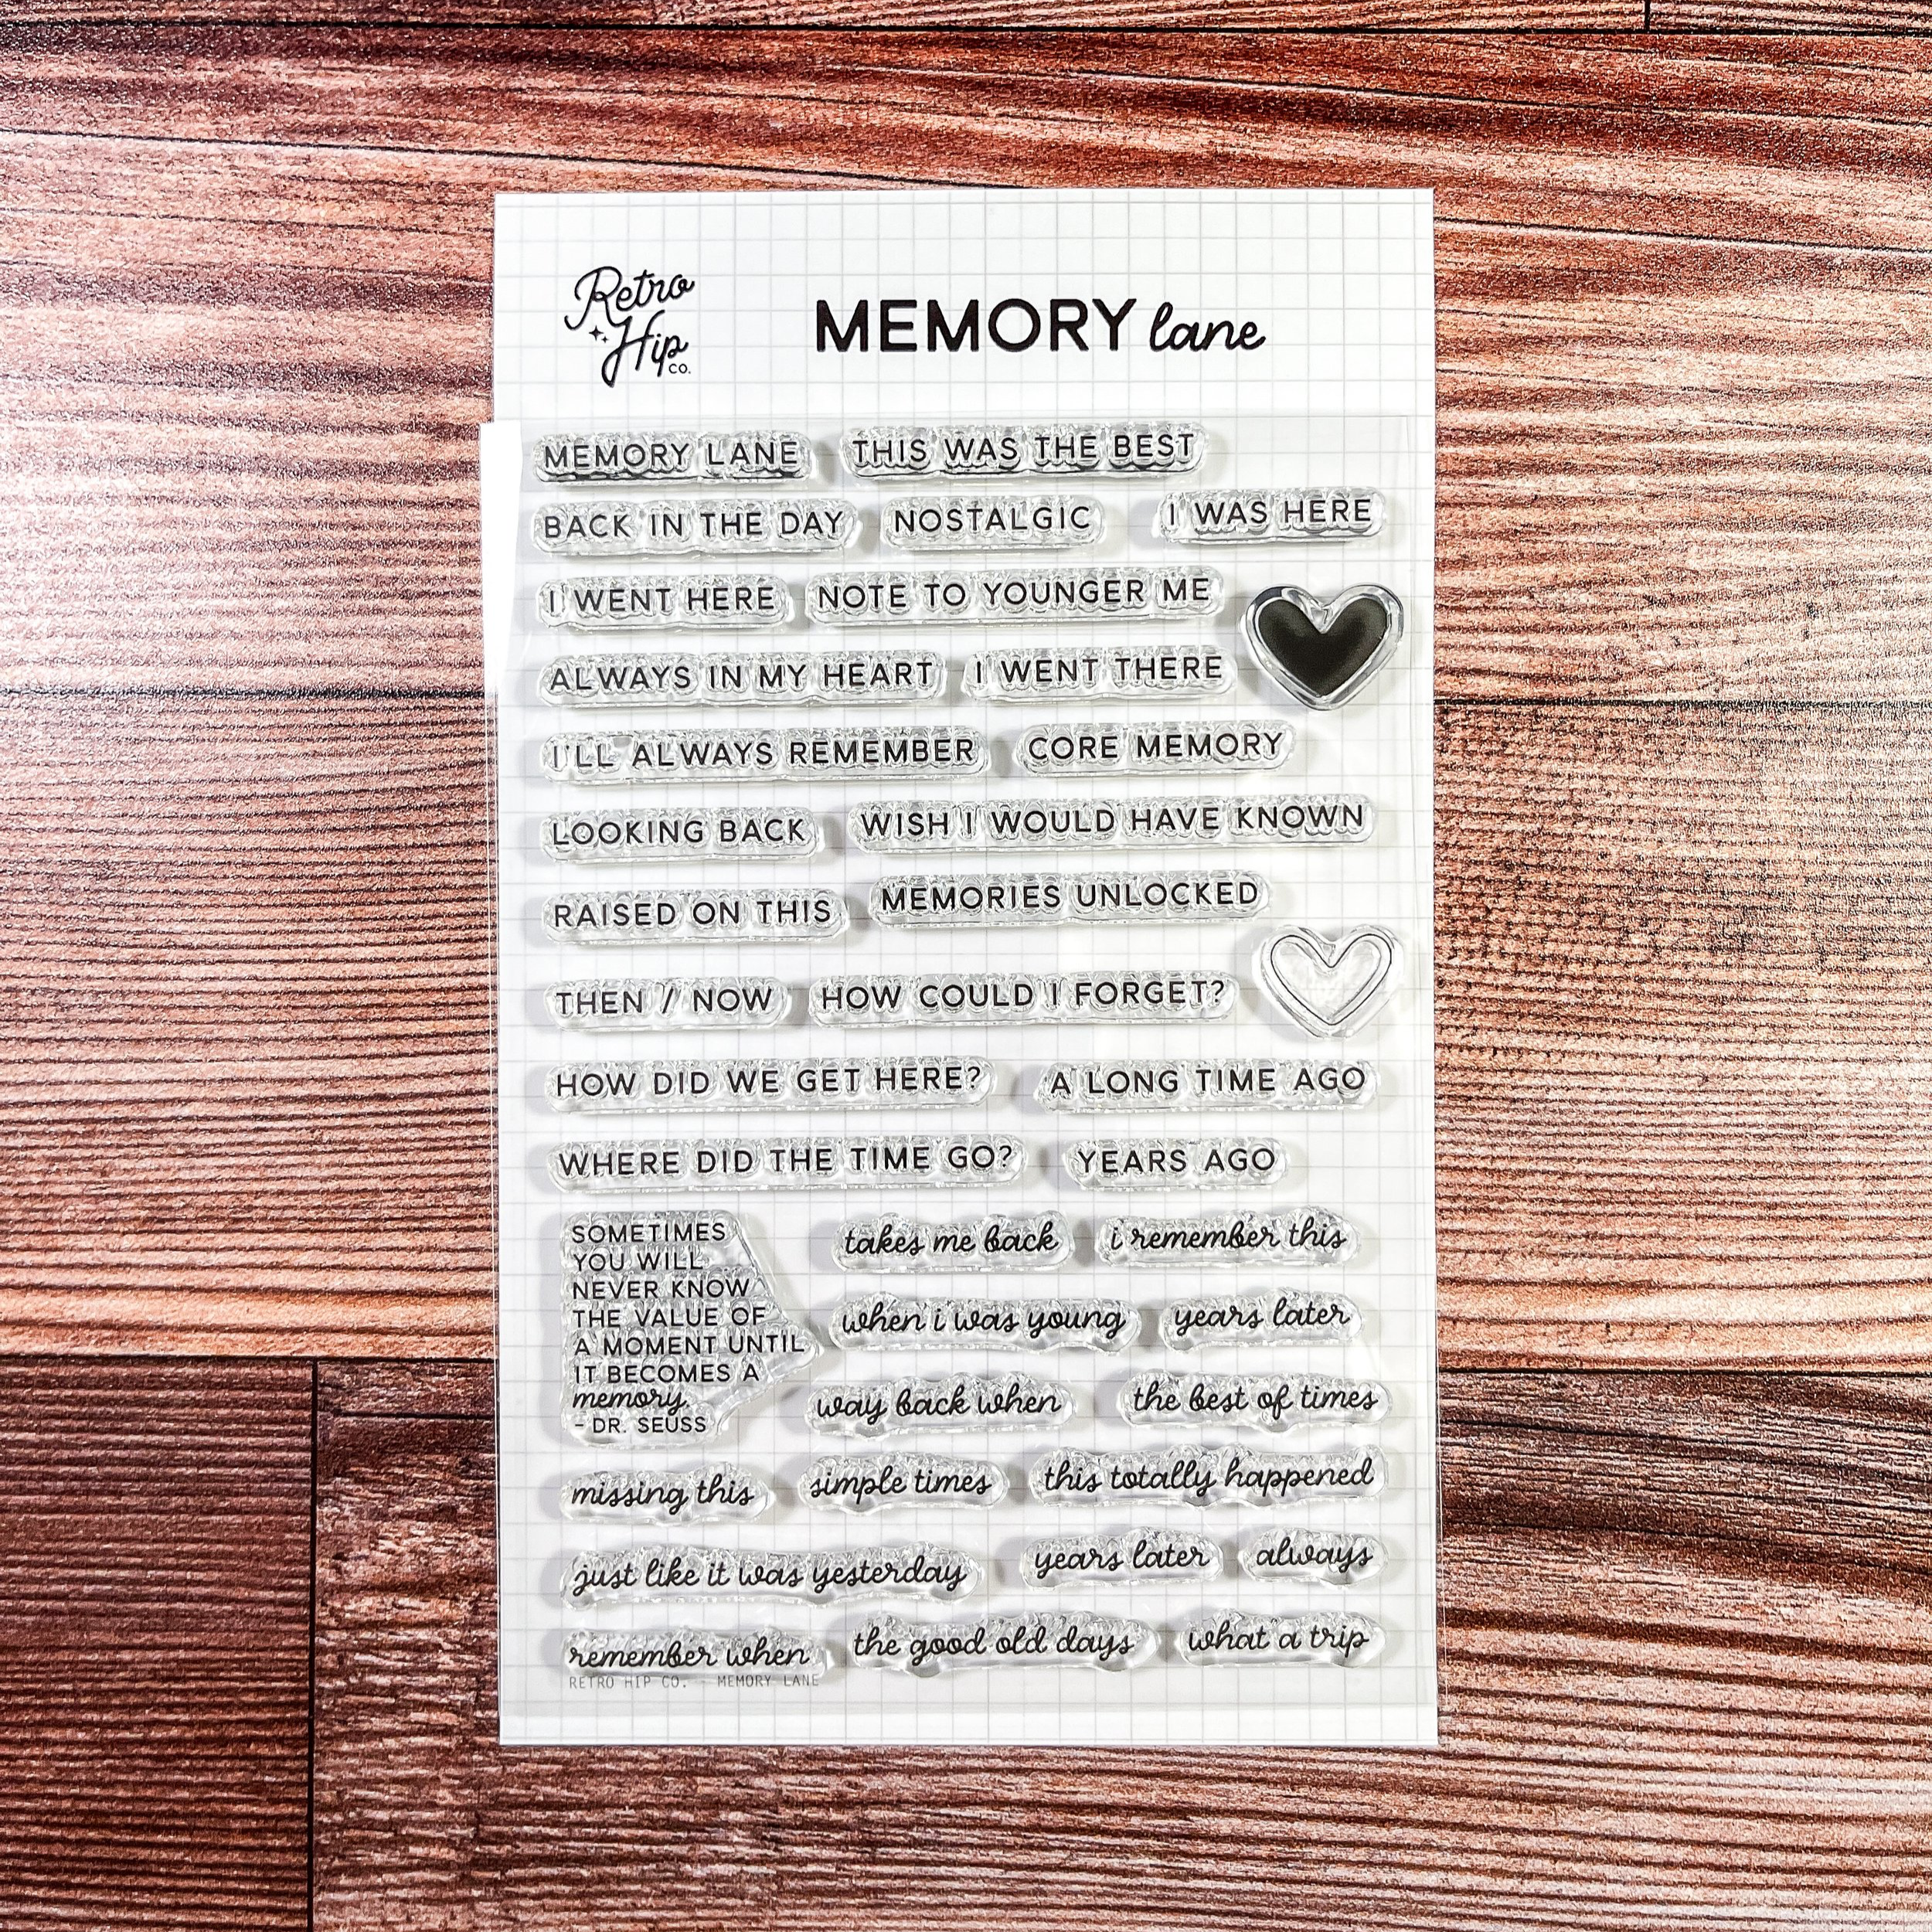 Retro
Hip
CO.
MEMORY lane
MEMORY LANE
THIS WAS THE BEST
BACK IN THE DAY
NOSTALGIC
I WAS HERE
I WENT HERE
NOTE TO YOUNGER ME
ALWAYS IN MY HEART
I WENT THERE
I'LL ALWAYS REMEMBER
CORE MEMORY
LOOKING BACK
WISH I WOULD HAVE KNOWN
RAISED ON THIS
MEMORIES UNLOCKED
THEN / NOW
HOW COULD I FORGET?
HOW DID WE GET HERE?
A LONG TIME AGO
WHERE DID THE TIME GO?
YEARS AGO
SOMETIMES
YOU WILL
NEVER KNOW
THE VALUE OF
A MOMENT UNTIL
IT BECOMES A
memory.
- DR. SEUSS
takes me back
i remember this
when i was young
years later
way back when
the best of times
missing this
simple times
this totally happened
just like it was yesterday
years later
always
remember when
the good old days
what a trip
RETRO HIP CO. - MEMORY LANE